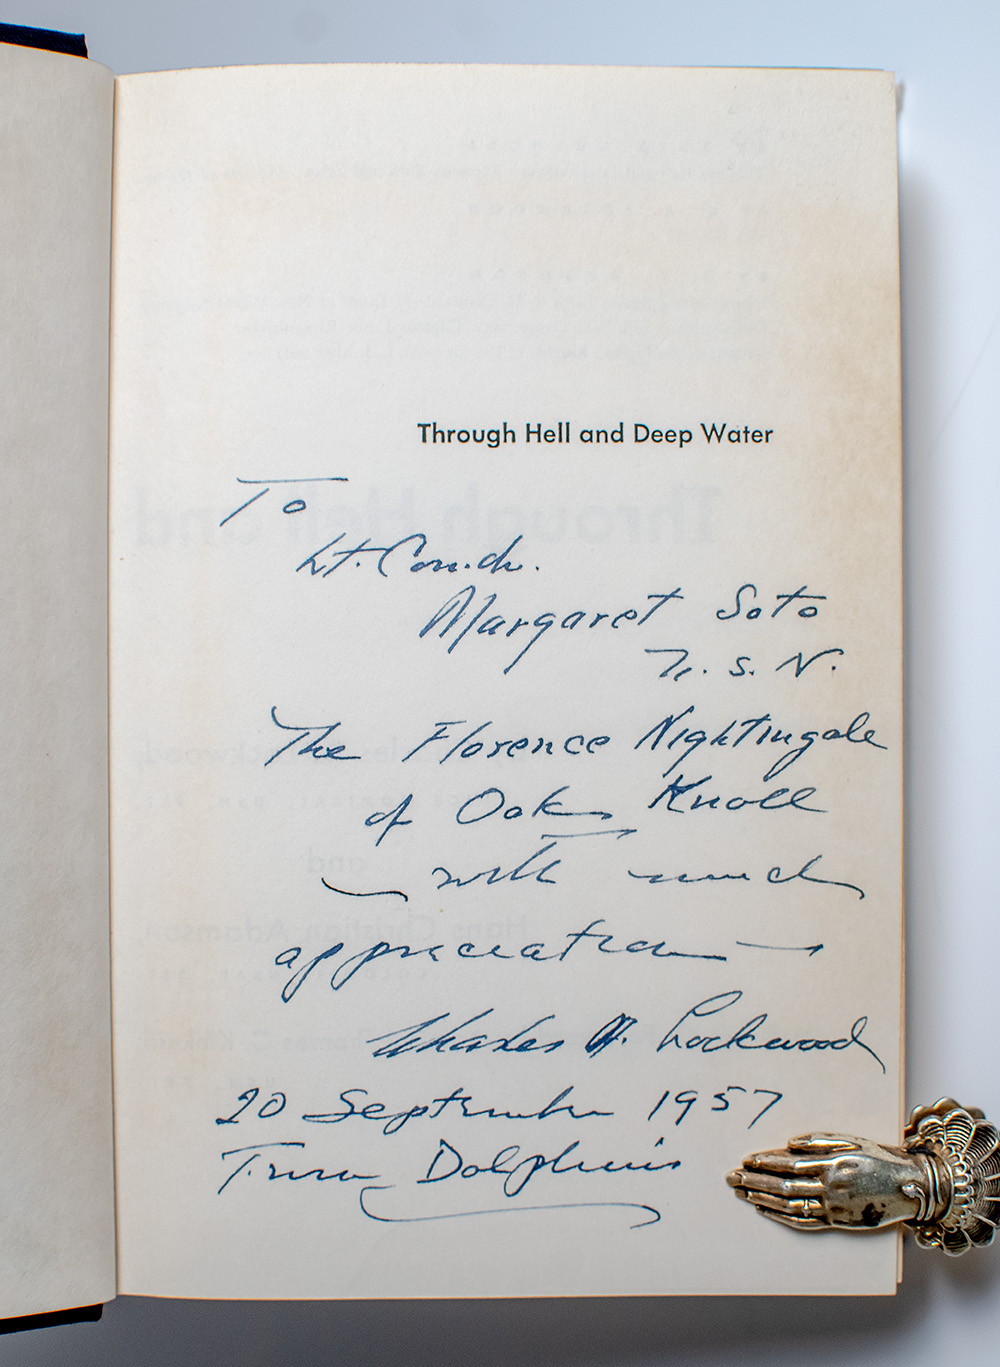 Through Hell and Deep Water
To
Lt. Comdr.
Margaret Soto
N. S. N.
The Florence Nightingale
of Oak Knoll
with much
appreciation
Charles A. Lockwood
20 September 1957
Twin Dolphins